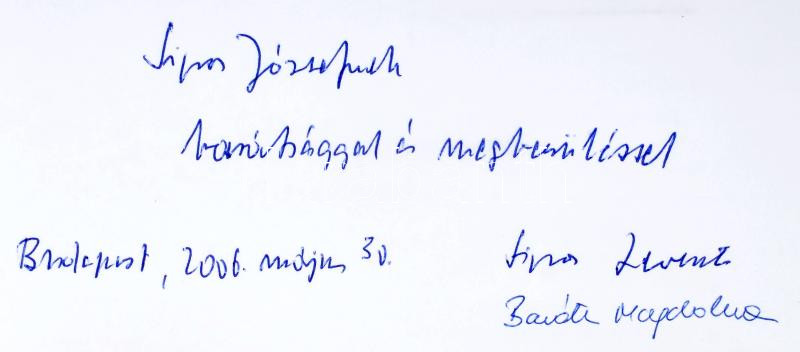 Sipos Józsefnek
barátsággal és megbecsüléssel
Budapest, 2006. május 30.
Sipos Levente
Baráth Magdolna